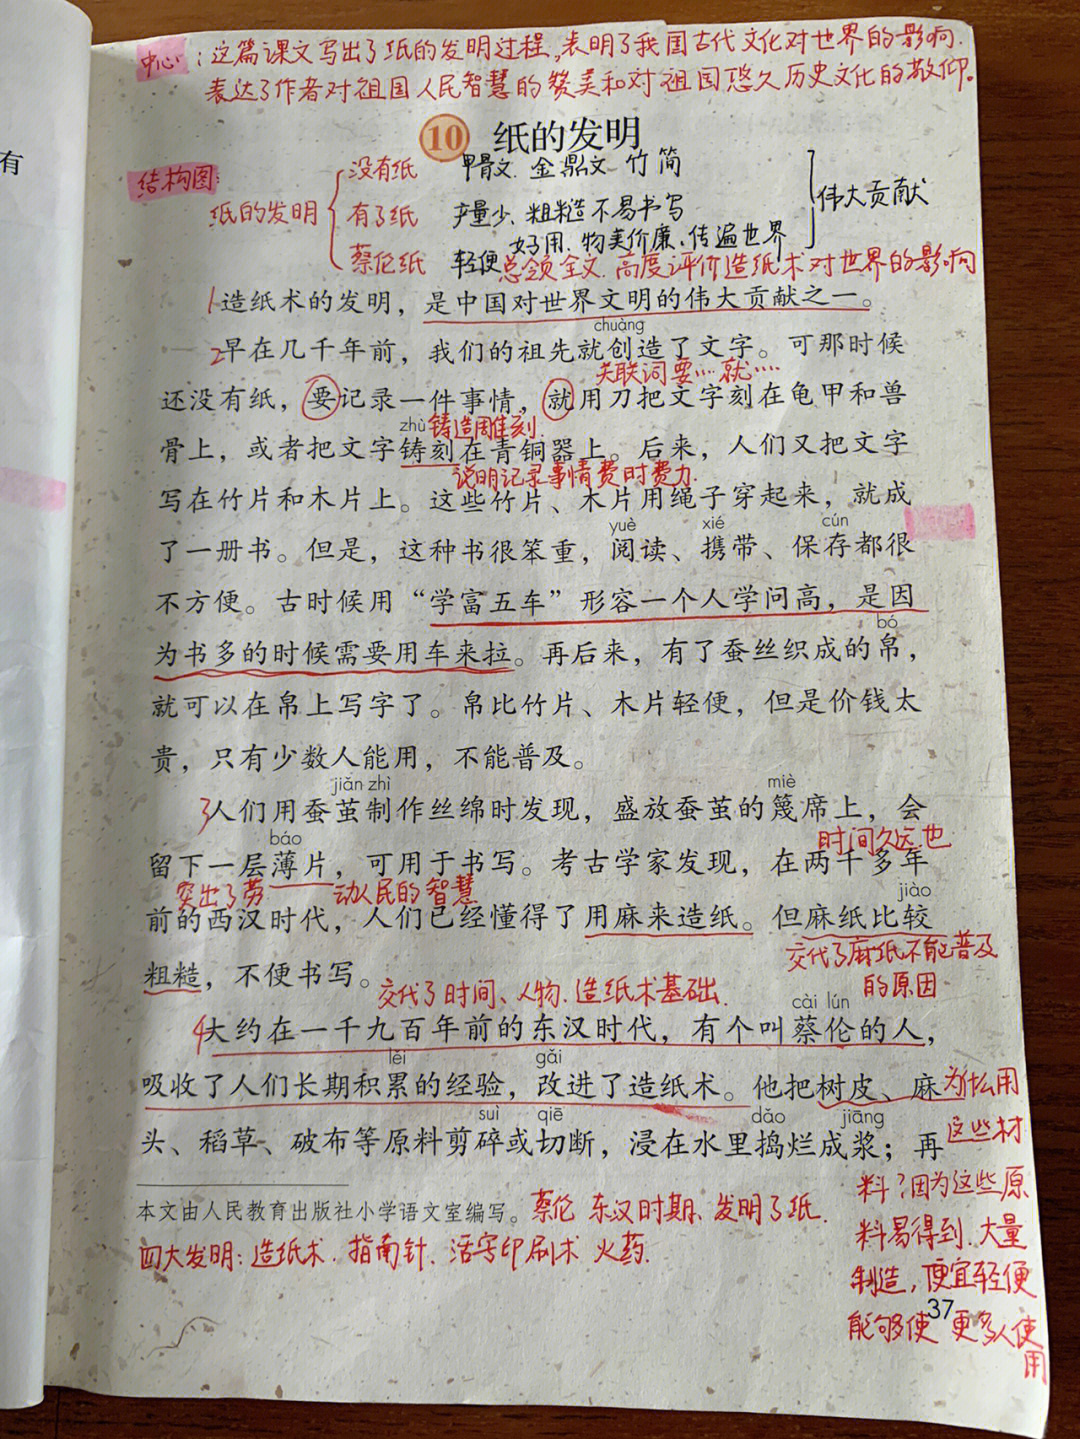 有
中心：这篇课文写出了纸的发明过程,表明了我国古代文化对世界的影响.
表达了作者对祖国人民智慧的赞美和对祖国悠久历史文化的敬仰。
10 纸的发明
结构图:
纸的发明
没有纸 甲骨文. 金鼎文 竹简
有了纸 产量少、粗糙不易书写
蔡伦纸 轻便好用. 物美价廉、传遍世界
伟大贡献
总领全文. 高度评价造纸术对世界的影响
1造纸术的发明，是中国对世界文明的伟大贡献之一。
chuàng
2早在几千年前，我们的祖先就创造了文字。可那时候
关联词要……就……
还没有纸，要记录一件事情，就用刀把文字刻在龟甲和兽
zhù 铸造雕刻.
骨上，或者把文字铸刻在青铜器上。后来，人们又把文字
说明记录事情费时费力.
写在竹片和木片上。这些竹片、木片用绳子穿起来，就成
yuè xié cún
了一册书。但是，这种书很笨重，阅读、携带、保存都很
不方便。古时候用“学富五车”形容一个人学问高，是因
bó
为书多的时候需要用车来拉。再后来，有了蚕丝织成的帛，
就可以在帛上写字了。帛比竹片、木片轻便，但是价钱太
贵，只有少数人能用，不能普及。
jiǎn zhì miè
3人们用蚕茧制作丝绵时发现，盛放蚕茧的篾席上，会
báo 时间久远.也
留下一层薄片，可用于书写。考古学家发现，在两千多年
突出了劳动人民的智慧 jiào
前的西汉时代，人们已经懂得了用麻来造纸。但麻纸比较
交代了麻纸不能普及的原因.
粗糙，不便书写。
交代了时间、人物.造纸术基础.
cài lún
4大约在一千九百年前的东汉时代，有个叫蔡伦的人，
lěi gǎi
吸收了人们长期积累的经验，改进了造纸术。他把树皮、麻
suì qiē dǎo jiāng
头、稻草、破布等原料剪碎或切断，浸在水里捣烂成浆；再
为什么用
这些材
料?因为这些原
料易得到.大量
制造，便宜轻便
能够使更多人使
用
本文由人民教育出版社小学语文室编写。
蔡伦 东汉时期、发明了纸.
四大发明：造纸术. 指南针. 活字印刷术 火药.
37